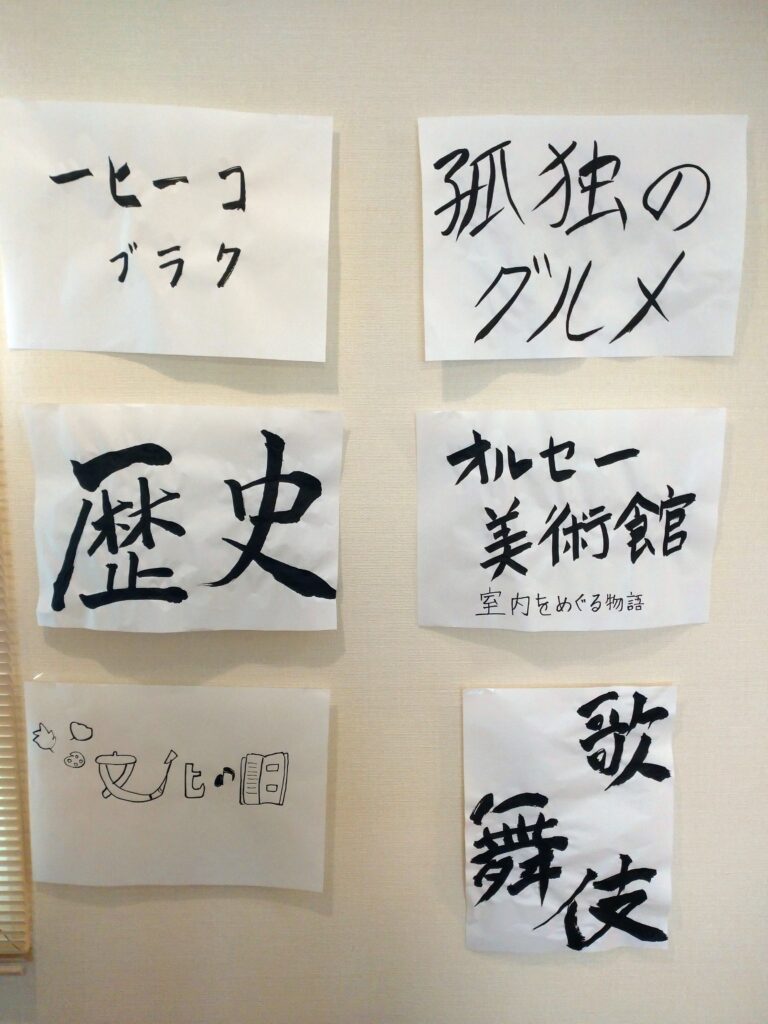 コーヒー
クラブ
孤独の
グルメ
歴史
オルセー
美術館
室内をめぐる物語
文化の日
歌舞伎